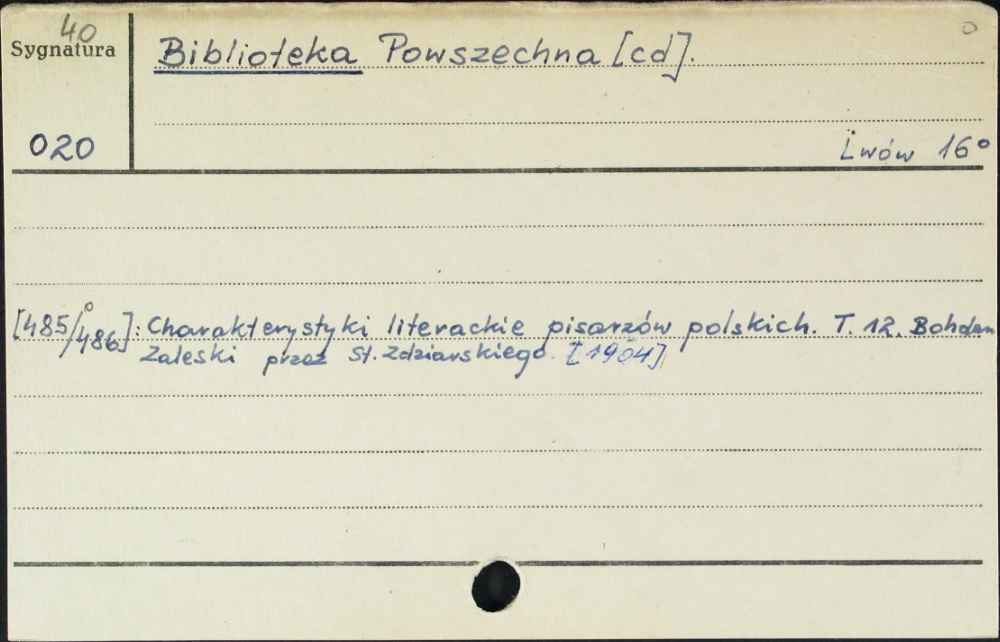 40
Sygnatura
Biblioteka Powszechna [cd].
020
Lwów 16°
[485/486]: Charakterystyki literackie pisarzów polskich. T. 12. Bohdan
Zaleski przez St. Zdziarskiego. [1904]